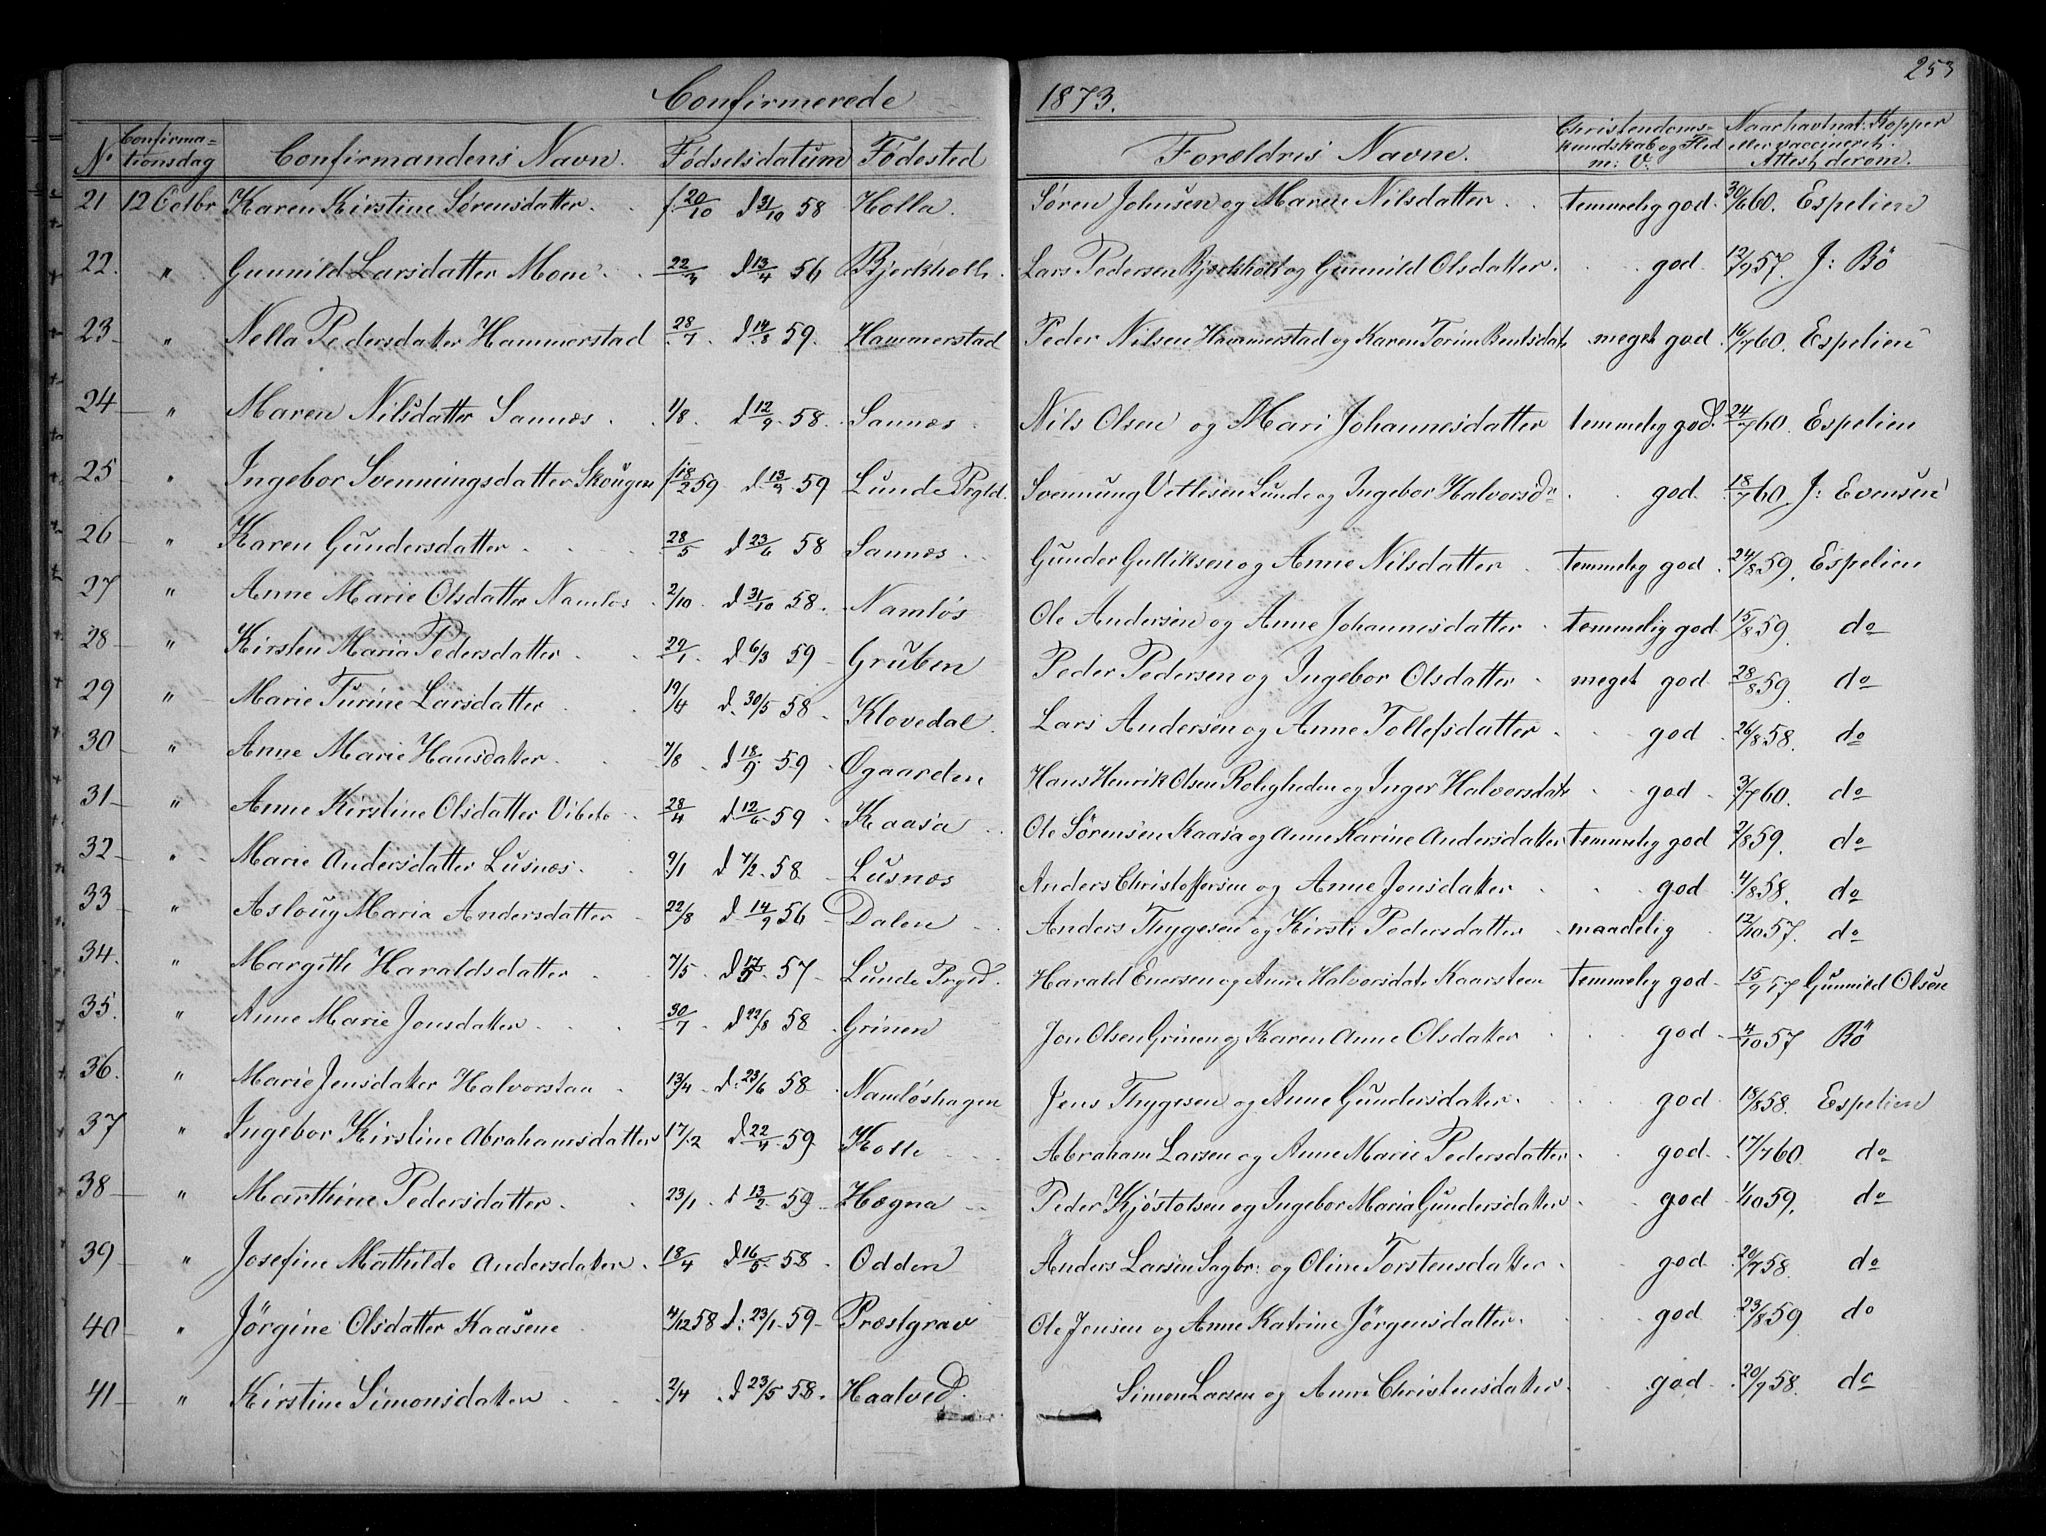 253
Confirmerede 1873.
No Confirmationsdag Confirmandens Navn. Fødselsdatum Fødested Forældres Navne. Christendomskundskab og Flid m: V. Naar havt nat: Kopper eller vaccineret. Attest derom.
21 12 Octbr Karen Kirstine Sørensdatter. f. 20/10 d 31/10 58 Holla. Søren Johnsen og Maren Nilsdatter temmelig god. 30/6 60. Espelien
22. " Gunnild Larsdatter Moen 22/3 d 13/4 56 Bjerkholt. Lars Pedersen Bjerkholt og Gunnild Olsdatter. god 12/9 57. J: Bö
23 " Nella Pedersdatter Hammerstad 28/7. d 14/8 59. Hammerstad Peder Nilsen Hammerstad og Karen Torine Bentsdatr meget god 16/7 60. Espelien
24 " Maren Nilsdatter Sannæs 1/8 d 12/9 58. Sannæs Nils Olsen og Mari Johannesdatter temmelig god. 24/7 60. Espelien
25 " Ingebor Svenningsdatter Skougen f 18/2 59 d. 13/3 59 Lunde Prgld. Svennung Vetlesen Lunde og Ingebor Halvorsdr god 18/7 60. J: Evensen
26 " Karen Gundersdatter 28/5 d 23/6 58 Sannæs Gunder Gulliksen og Anne Nilsdatter temmelig god 24/8 59. Espelien
27 " Anne Marie Olsdatter Namløs 2/10. d 31/10 58. Namløs Ole Andersen og Anne Johannesdatter temmelig god 15/8 59. do
28 " Kirsten Maria Pedersdatter 29/1. d 6/3 59 Gruben Peder Pedersen og Ingebor Olsdatter meget god 28/8 59. do
29 " Marie Turine Larsdatter 19/4 d. 30/5 58 Klovedal. Lars Andersen og Anne Tollefsdatter god 26/8 58. do
30 " Anne Marie Hansdatter 7/8 d 18/9 59 Øgaarden Hans Henrik Olsen Roligheden og Inger Halvorsdatr god 3/7 60. do
31 " Anne Kirstine Olsdatter Vibeto 28/4 d 12/6 59 Kaasa Ole Sörensen Kaasa og Anne Karine Andersdatter temmelig god 2/8 59. do
32 " Marie Andersdatter Lusnæs 9/1 d 7/2 58 Lusnæs Anders Christoffersen og Anne Jensdatter god 4/8 58. do
33 " Asloug Maria Andersdatter 22/8 d 14/9 56 Dalen Anders Thygesen og Kirsti Pedersdatter maadelig 12/10 57. do
34. " Margith Haraldsdatter 7/5 d 17/5 57 Lunde Prgd. Harald Enersen og Anne Halvorsdatr Kaarsteen temmelig god 15/9 57 Gunnild Olsen
35. " Anne Marie Jonsdatter 30/7 d 22/8 58 Grinen Jon Olsen Grinen og Karen Anne Olsdatter god 4/10 57 Bö
36. " Marie Jensdatter Halvorstaa 13/4 d: 23/6 58 Namløshagen Jens Thygesen og Anne Gundersdatter god 18/8 58. Espelien
37 " Ingebor Kirstine Abrahamsdatter 17/12 d 22/4 59 Kotte Abraham Larsen og Anne Marie Pedersdatter god 17/7 60. do
38 " Marthine Pedersdatter 23/1. d 13/2 59 Hægna Peder Kjöstolsen og Ingebor Maria Gundersdatter god 1/10 59. do
39 " Josefine Mathilde Andersdatter 18/4 d 16/5 58 Odden Anders Larsen Sagbr: og Oline Torstensdatter god 20/7 58. do
40 " Jørgine Olsdatter Kaasene 4/12 58 d: 23/1 59 Præstgrav Ole Jensen og Anne Katrine Jørgensdatter god 23/8 59 do
41 " Kirstine Simonsdatter 2/4 d 23/5 58. Haatved. Simon Larsen og Anne Christensdatter god 20/9 58. do